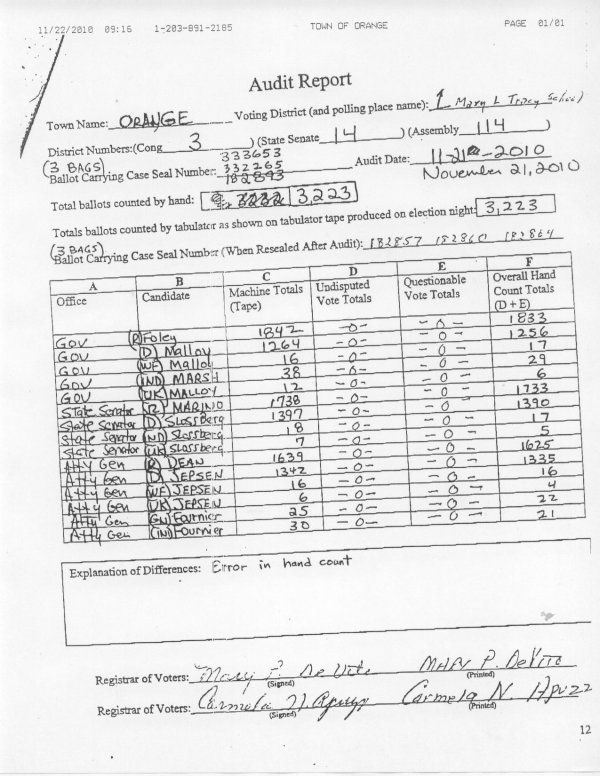 11/22/2010 09:16 1-203-891-2185 TOWN OF ORANGE PAGE 01/01
Audit Report
Town Name: ORANGE Voting District (and polling place name): 1 Mary L Tracy School
District Numbers:(Cong 3 ) (State Senate 14 ) (Assembly 114 )
(3 BAGS) 333653
Ballot Carrying Case Seal Number: 332265 Audit Date: 11-21-2010
182893 November 21, 2010
Total ballots counted by hand: 3232 3,223
Totals ballots counted by tabulator as shown on tabulator tape produced on election night: 3,223
(3 BAGS)
Ballot Carrying Case Seal Number (When Resealed After Audit): 182857 182860 182864
A B C D E F
Office Candidate Machine Totals (Tape) Undisputed Vote Totals Questionable Vote Totals Overall Hand Count Totals (D + E)
Gov (R) Foley 1842 -0- -0- 1833
Gov (D) Malloy 1264 -0- -0- 1256
Gov (WF) Malloy 16 -0- -0- 17
Gov (IND) MARSH 38 -0- -0- 29
Gov (UK) MALLOY 12 -0- -0- 6
State Senator (R) MARINO 1738 -0- -0- 1733
State Senator (D) Slossberg 1397 -0- -0- 1390
State Senator (IND) Slossberg 18 -0- -0- 17
State Senator (UK) Slossberg 7 -0- -0- 5
Atty Gen (R) DEAN 1639 -0- -0- 1625
Atty Gen (D) JEPSEN 1342 -0- -0- 1335
Atty Gen (WF) JEPSEN 16 -0- -0- 16
Atty Gen (UK) JEPSEN 6 -0- -0- 4
Atty Gen (GN) Fournier 25 -0- -0- 22
Atty Gen (IN) Fournier 30 -0- -0- 21
Explanation of Differences: Error in hand count
Registrar of Voters: Mary P. DeVito MARY P. DeVITO
(Signed) (Printed)
Registrar of Voters: Carmela N. Apuzz Carmela N. Apuzz
(Signed) (Printed)
12